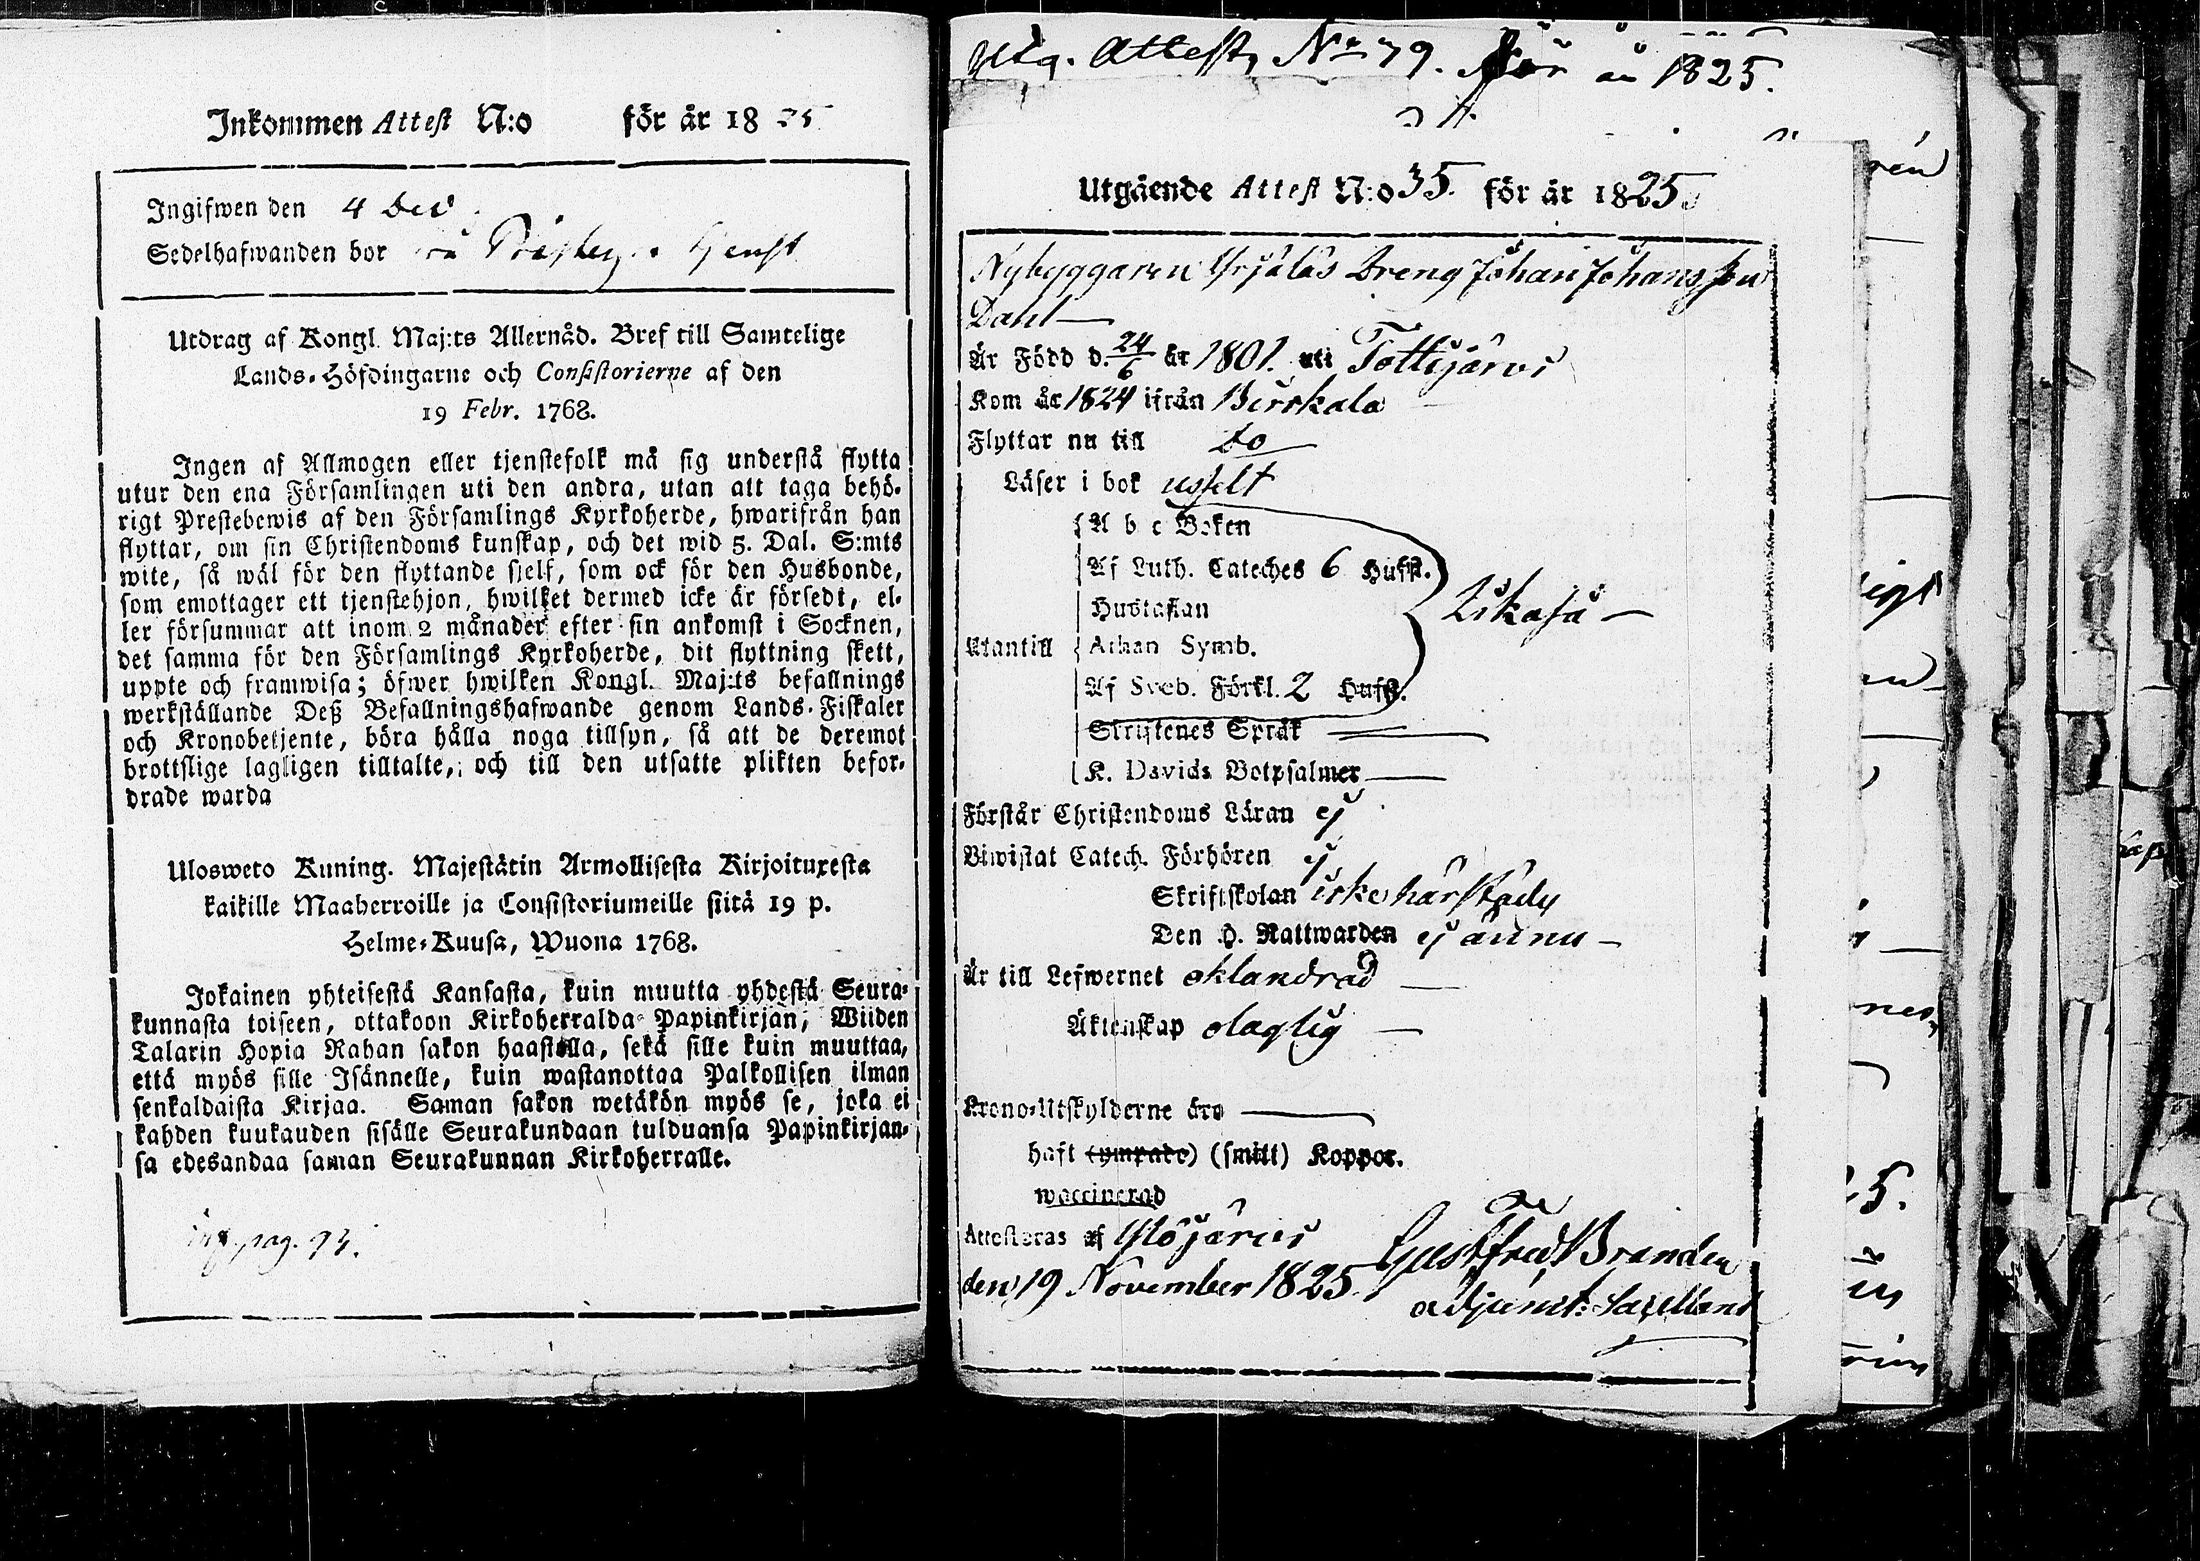 Inkommen Attest N:o för år 18 25
Ingifwen den 4 Dec
Sedelhafwanden bor
Utdrag af Kongl. Maj:ts Allernåd. Bref till Samtelige
Lands-Höfdingarne och Consistorierne af den
19 Febr. 1768.
Ingen af Allmogen eller tjenstefolk må sig understå flytta
utur den ena Församlingen uti den andra, utan att taga behö-
rigt Prestebewis af den Församlings Kyrkoherde, hwarifrån han
flyttar, om sin Christendoms kunskap, och det wid 5. Dal. S:mts
wite, så wäl för den flyttande sjelf, som ock för den Husbonde,
som emottager ett tjenstehjon, hwilket dermed icke är försedt, el-
ler försummar att inom 2 månader efter sin ankomst i Socknen,
det samma för den Församlings Kyrkoherde, dit flyttning skett,
uppte och framwisa; öfwer hwilken Kongl. Maj:ts befallnings
werkställande Deß Befallningshafwande genom Lands-Fiskaler
och Kronobetjente, böra hålla noga tillsyn, så att de deremot
brottslige lagligen tilltalte, och till den utsatte plikten befor-
drade warda
Ulosweto Kuning. Majestätin Armollisesta Kirjoituxesta
kaikille Maaherroille ja Consistoriumeille siitä 19 p.
Helme-Kuusa, Wuona 1768.
Jokainen yhteisestä Kansasta, kuin muutta yhdestä Seura-
kunnasta toiseen, ottakoon Kirkoherralda Papinkirjan, Wiiden
Talarin Hopia Rahan sakon haastolla, sekä sille kuin muuttaa,
että myös sille Isännelle, kuin wastanottaa Palkollisen ilman
senkaldaista Kirjaa. Saman sakon wetäkön myös se, joka ei
kahden kuukauden sisälle Seurakundaan tulduansa Papinkirjan-
sa edesandaa saman Seurakunnan Kirkoherralle.
pag. 93.
Utg. Attest, No 79. För år 1825.
Utgående Attest N:o 35. för år 1825
Nybyggaren Yrjäläs Dreng Johan Johansson
Dahl
Är Född d. 24/6 år 1801. uti Tottijärvi
Kom år 1824 ifrån Birkkala
Flyttar nu till Do
Läser i bok uselt
A b c Boken
Af Luth. Cateches 6 Hufst.
Hustaflan
Utantill Athan Symb.
Af Sveb. Förkl. 2 Hufst.
Likaså
Skriftenes Språk
K. Davids Botpsalmer
Förstår Christendoms Läran ej
Biwistat Catech. Förhören ej
Skriftskolan icke härstädes
Den H. Nattwarden ej ännu
Är till Lefwernet oklandrad
Äktenskap olaglig
Krono-Utskylderne äro
haft (ympade) (smitt) Koppor.
waccinerad
Attesteras af Ylöjärvi
den 19 November 1825.
Gustfred Brander
adjunct: Sacellani